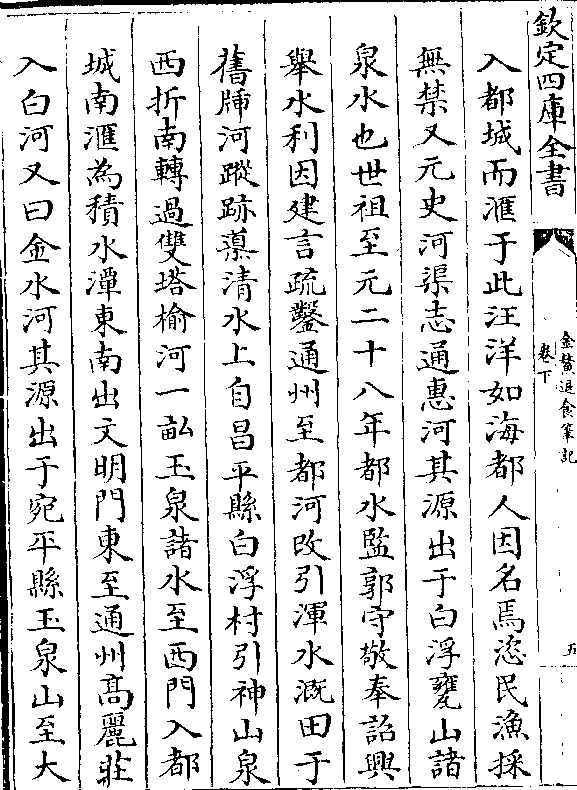 欽定四庫全書
金鰲退食筆記
卷下
五
入都城而滙于此汪洋如海都人因名焉恣民漁採
無禁又元史河渠志通惠河其源出于白浮甕山諸
泉水也世祖至元二十八年都水監郭守敬奉詔興
舉水利因建言疏鑿通州至都河改引渾水溉田于
舊牐河蹤跡導清水上自昌平縣白浮村引神山泉
西折南轉過雙塔榆河一畝玉泉諸水至西門入都
城南滙為積水潭東南出文明門東至通州髙麗莊
入白河又曰金水河其源出于宛平縣玉泉山至大